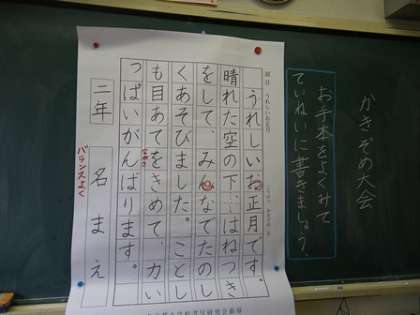 かきぞめ大会
お手本をよくみて
ていねいに書きましょう。
うれしいお正月です。
晴れた空の下、はねつき
をして、みんなでたのし
くあそびました。ことし
も目あてをきめて、力い
っぱいがんばります。
二年 名まえ
バランスよく